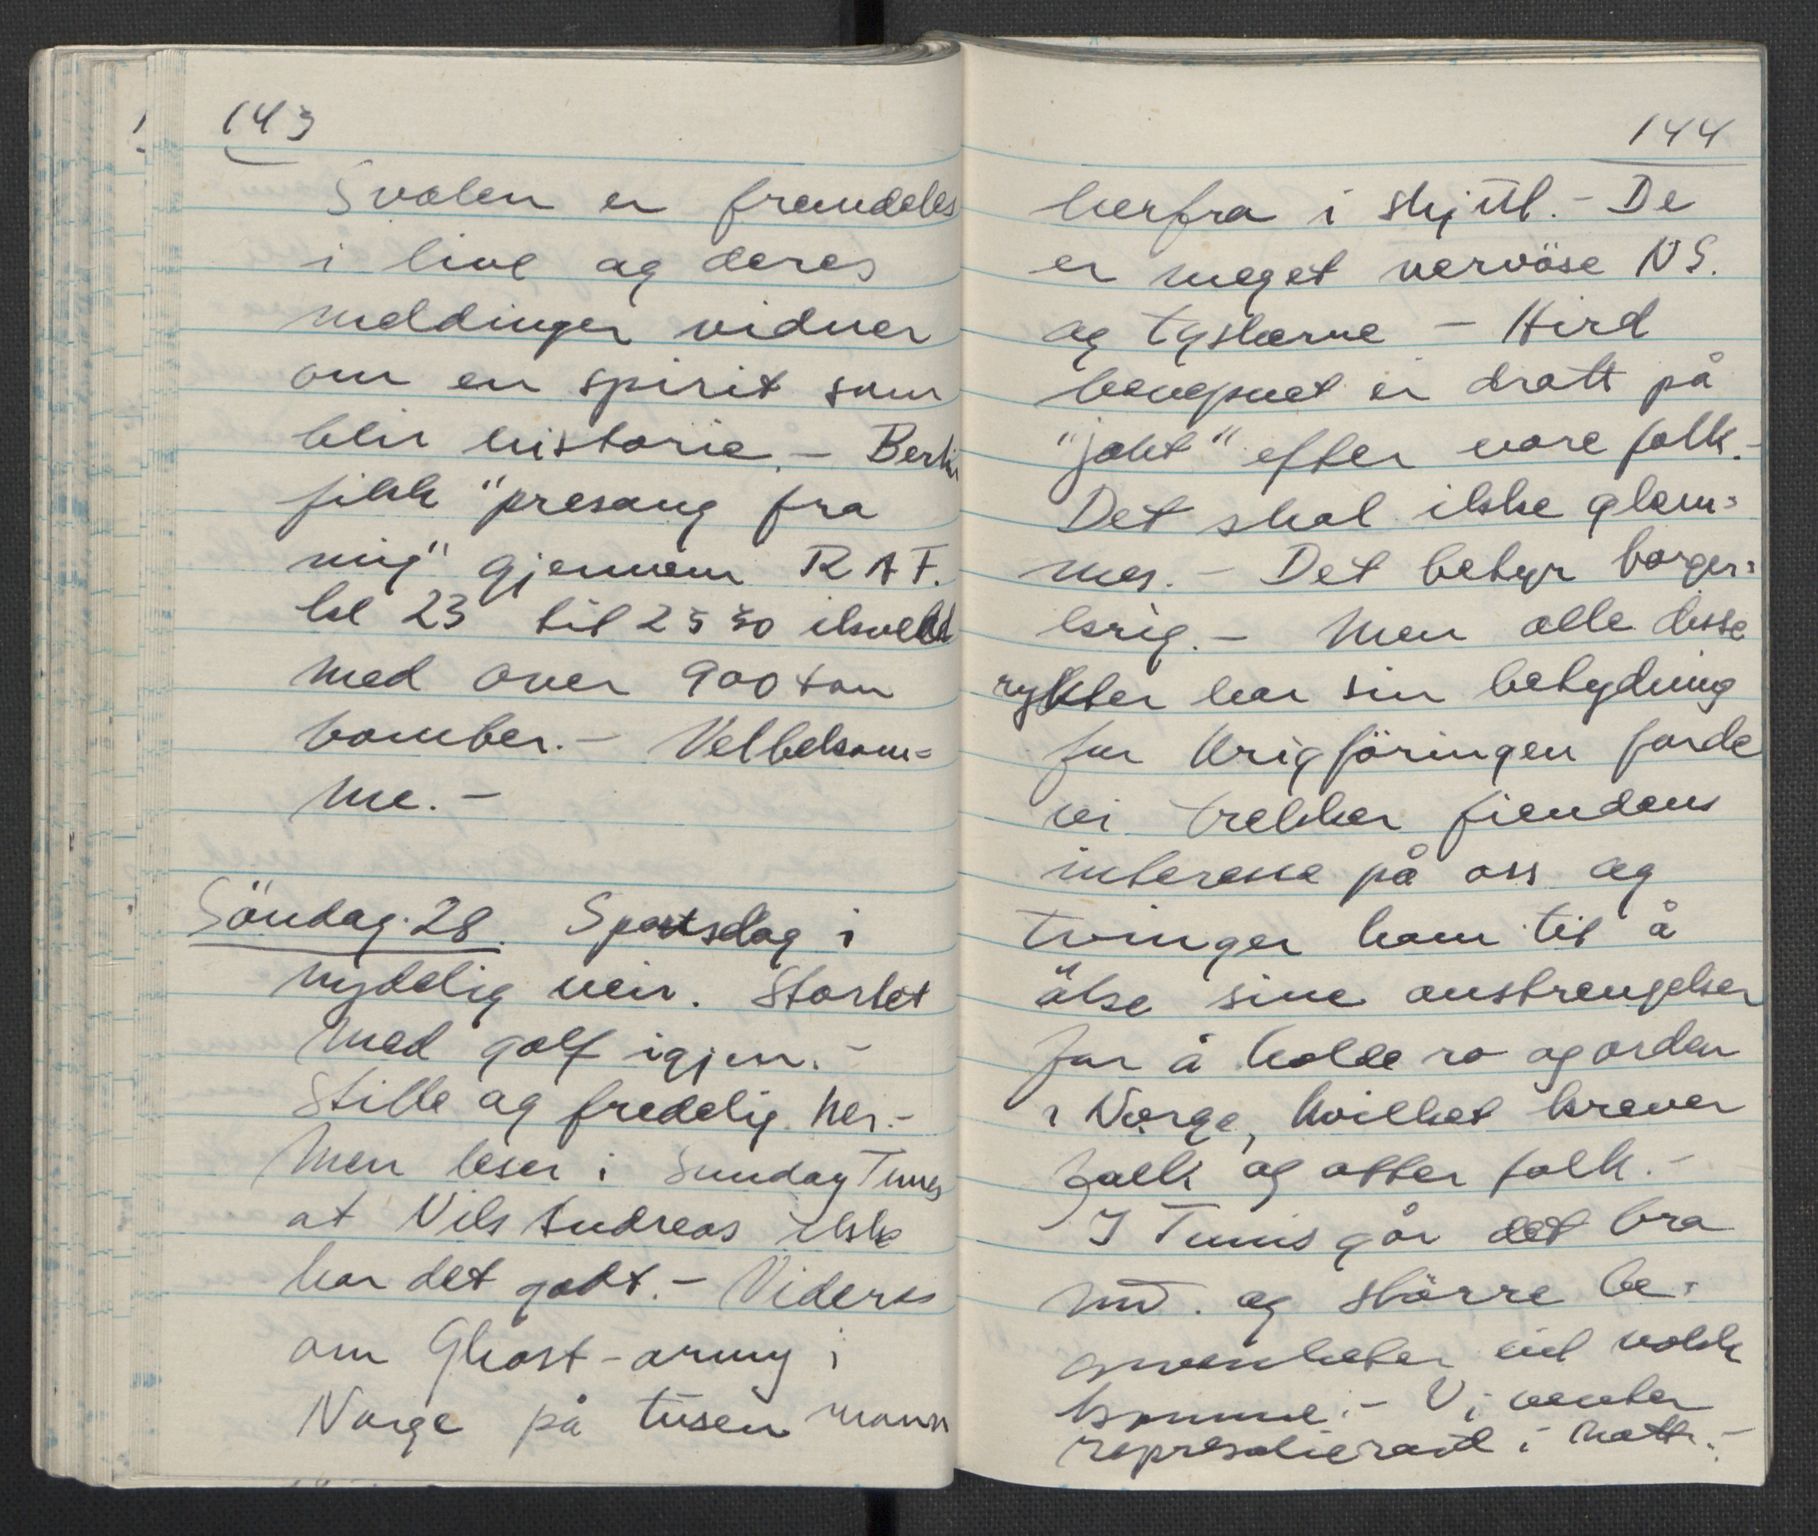 143
Svalen er fremdeles
i live og deres
meldinger vidner
om en spirit som
blir historie. – Berlin
fikk "presang fra
mig" gjennem RAF.
kl 23 til 23 30
med over 900 ton
bomber. – Velbekom=
me. –
Söndag 28. Sportsdag i
nydelig veir. Startet
med golf igjen. –
Stille og fredelig her. –
Men leser i Sunday Times
at Nils Andreas ikke
har det godt. – Videre
om Ghost-army i
Norge på tusen mann
144
herfra i skjul. – De
er meget nervöse NS.
og tyskerne – Hird
bevepnet er dratt på
"jakt" efter vore folk. –
Det skal ikke glem=
mes. – Det betyr borger=
krig. – Men alle disse
rykter har sin betydning
for Krigföringen forde
vi trekker fiendens
interesse på oss og
tvinger ham til å
öke sine anstrengelser
for å holde ro og orden
i Norge, hvilket krever
folk og atter folk. –
I Tunis går det bra
nu. og större be=
givenheter vil nokk
komme. – Vi venter
represalieraid i natt. –